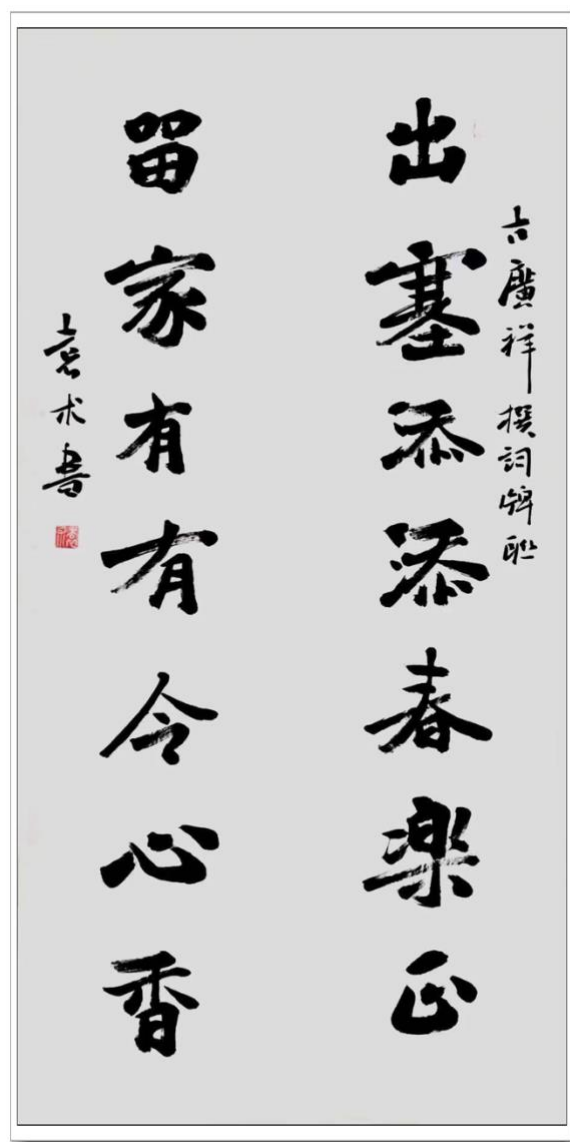 古廣祥撰詞牌联
出塞添添春楽正
留家有有令心香
袁术書